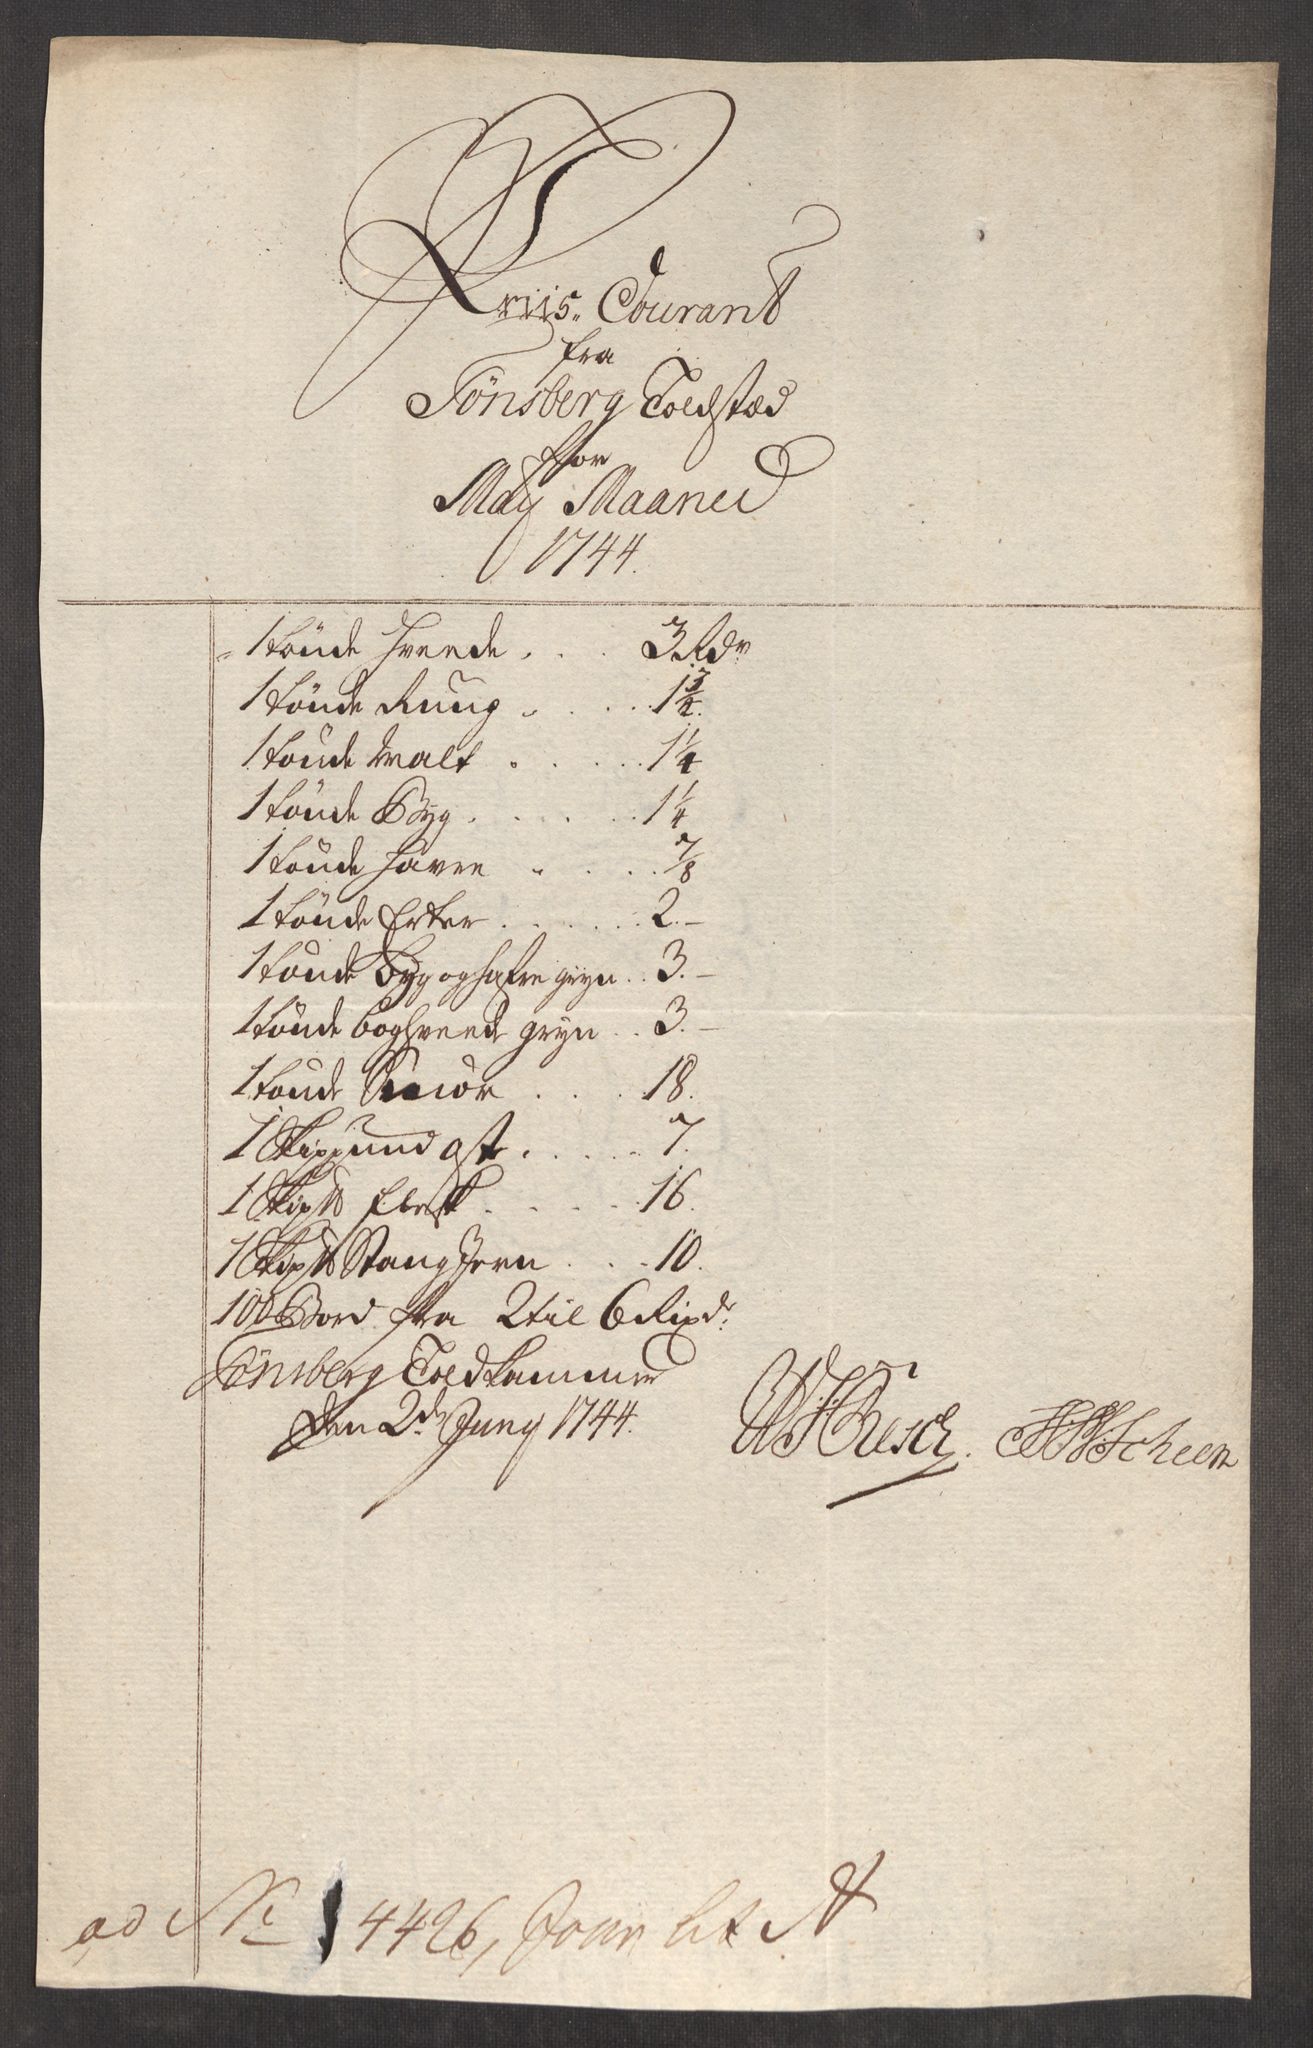 Priis Courant
fra
Tönsberg Toldstæd
for
May Maaned
1744.
1 tönde Hvede . . . 3 Rdr
1 tönde Ruug . . . . . 1 3/4.
1 tönde Malt . . . . . 1 1/4
1 tönde Byg . . . . . . 1 1/4
1 tönde Havre . . . . . 7/8
1 tönde Erter . . . . . . 2. –
1 tönde Byg og Hafre gryn . . 3. –
1 tönde boghvede gryn . . 3. –
1 tönde Smör . . . . 18.
1 Skippund Ost . . . . . 7.
1 Skip℔ Flesk . . . . . 16.
1 Skip℔ Stang Jern . . . 10.
100 Bord fra 2 til 6 Rixdr.
Tönsberg Toldkammer
den 2de Juny 1744.
Resch.
Scheen
ad No 4426, Jour Lit A